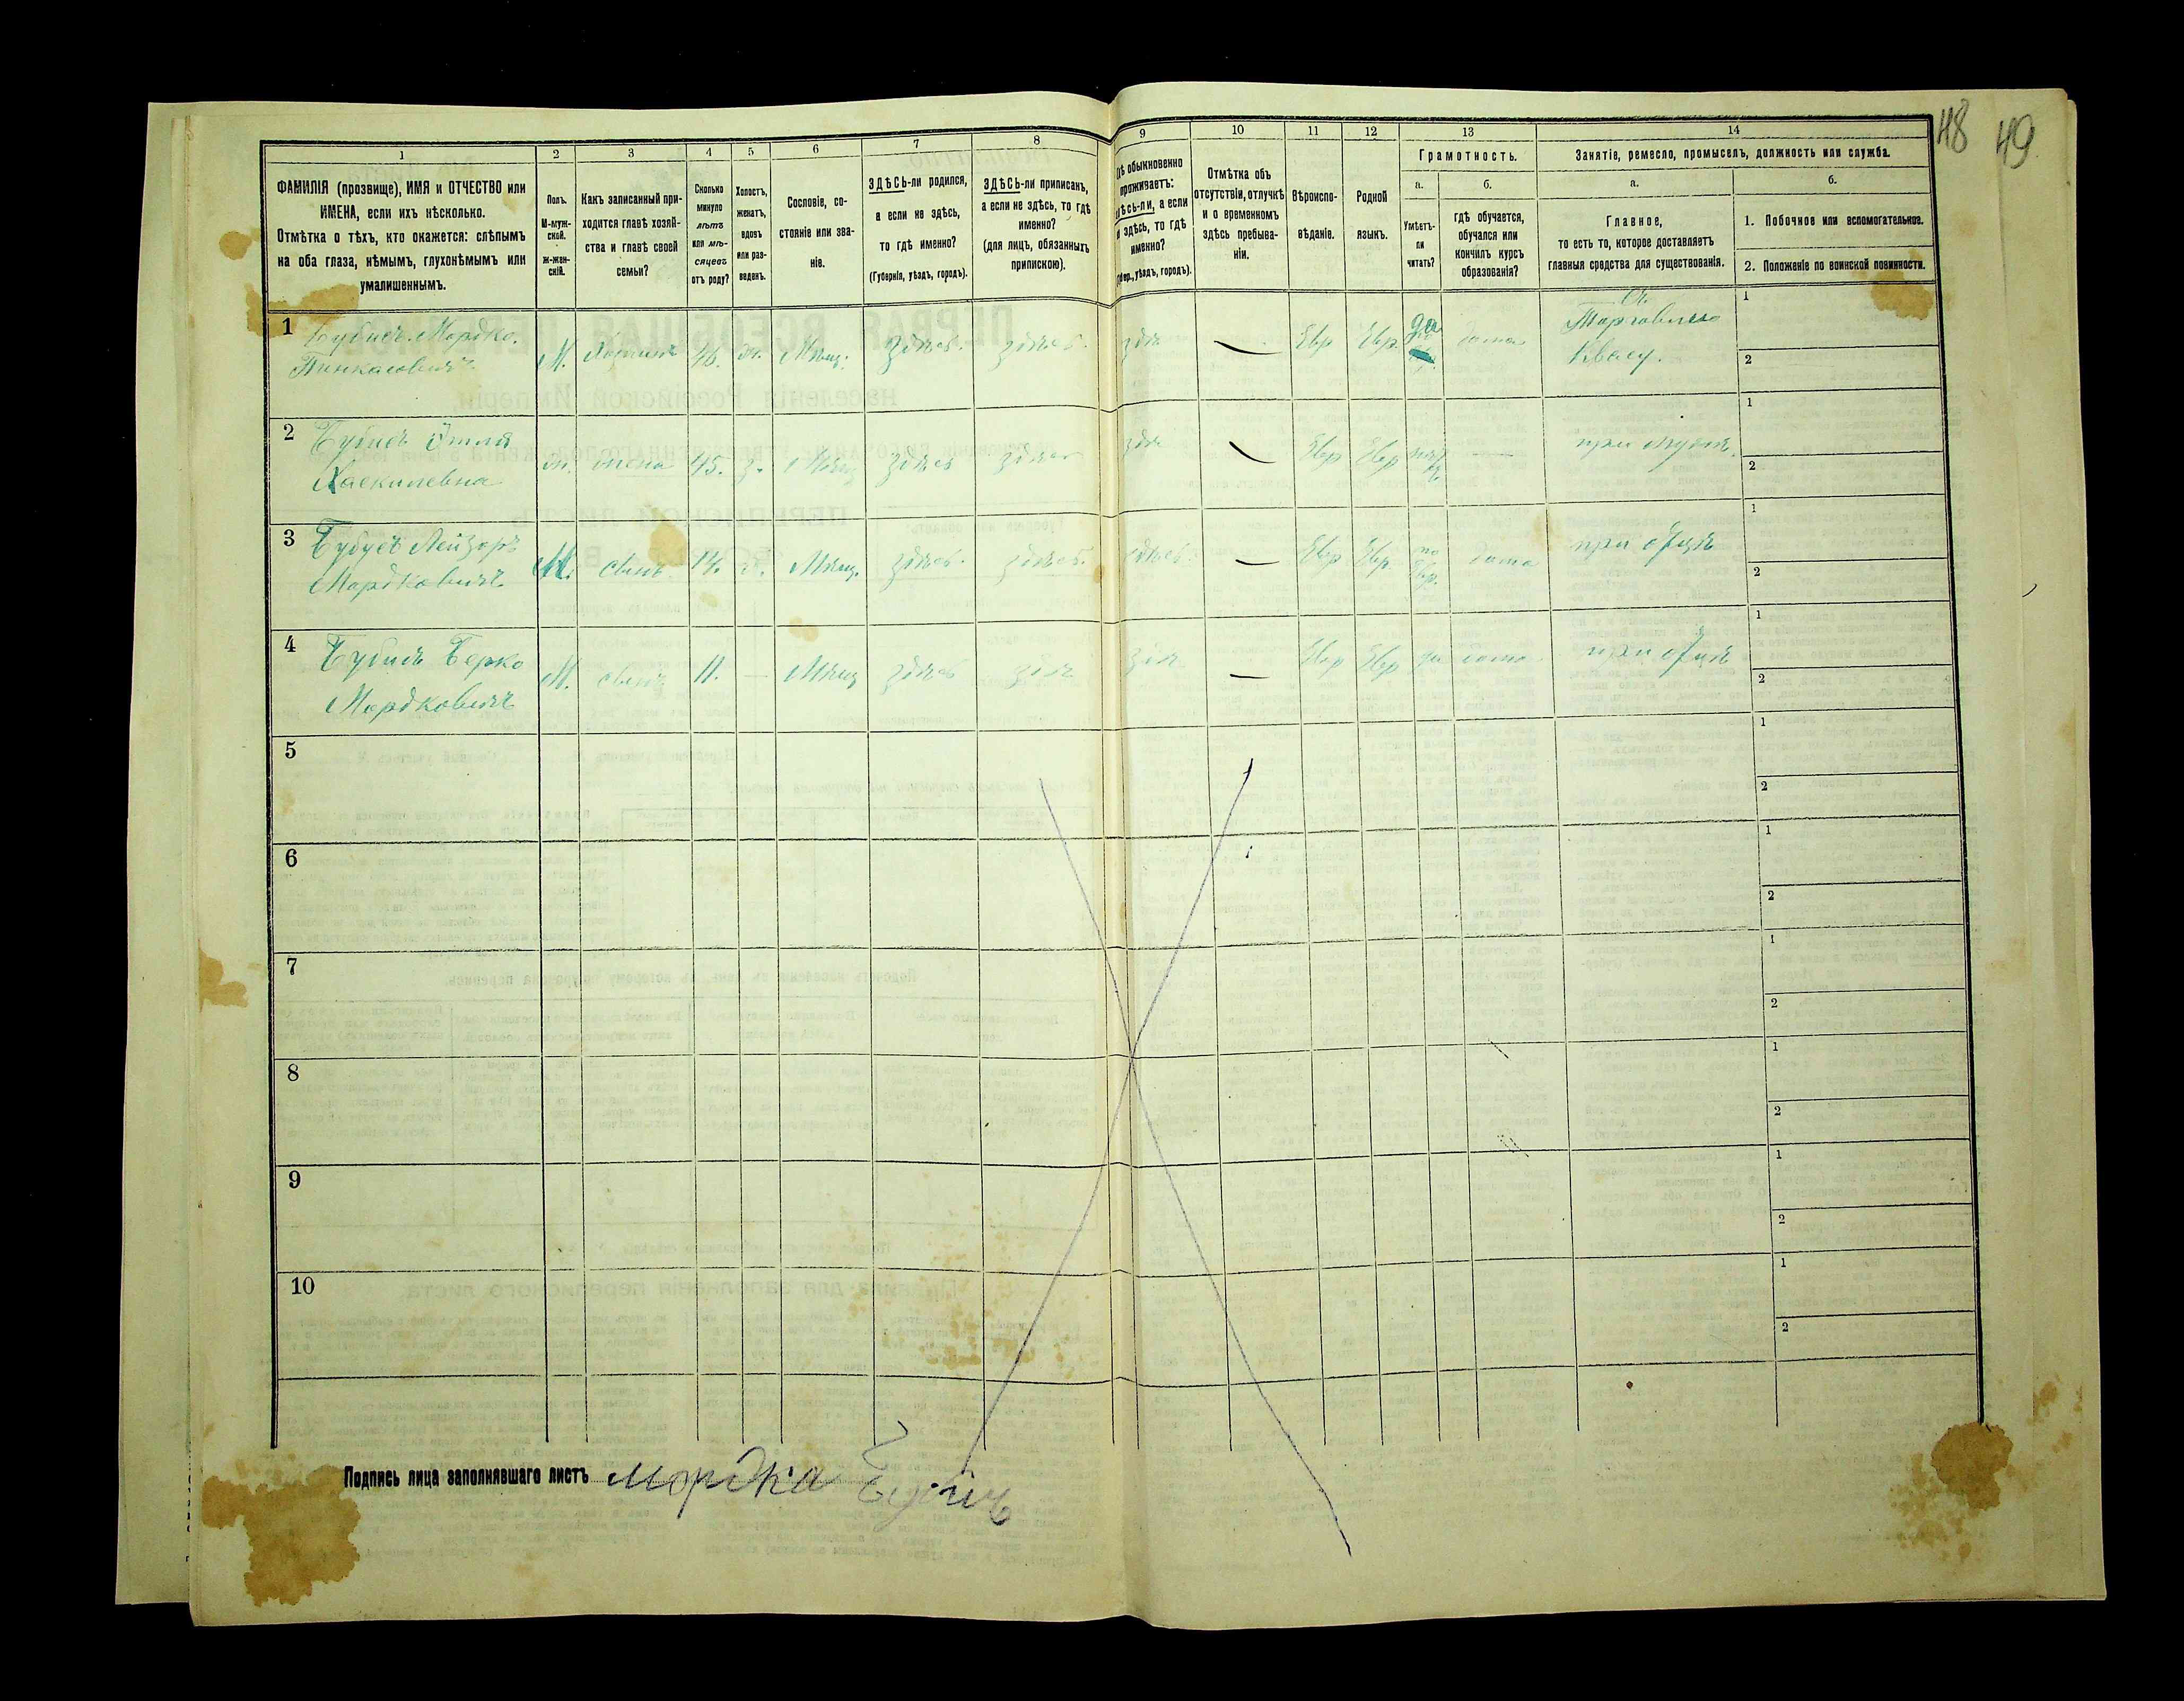 48 49
1 2 3 4 5 6 7 8 9 10 11 12 13 14
ФАМИЛІЯ (прозвище), ИМЯ и ОТЧЕСТВО или
ИМЕНА, если ихъ нѣсколько.
Отмѣтка о тѣхъ, кто окажется: слѣпымъ
на оба глаза, нѣмымъ, глухонѣмымъ или
умалишеннымъ.
Полъ.
М-муж-
ской.
ж-жен-
скій.
Какъ записанный при-
ходится главѣ хозяй-
ства и главѣ своей
семьи?
Сколько
минуло
лѣтъ
или мѣ-
сяцевъ
отъ роду?
Холостъ,
женатъ,
вдовъ
или раз-
веденъ.
Сословіе, со-
стояніе или зва-
ніе.
ЗДѢСЬ-ли родился,
а если не здѣсь,
то гдѣ именно?
(Губернія, уѣздъ, городъ).
ЗДѢСЬ-ли приписанъ,
а если не здѣсь, то гдѣ
именно?
(для лицъ, обязанныхъ
припискою).
обыкновенно
проживаетъ:
а если
здѣсь, то гдѣ
именно?
уѣздъ, городъ).
Отмѣтка объ
отсутствіи, отлучкѣ
и о временномъ
здѣсь пребыва-
ніи.
Вѣроиспо-
вѣданіе.
Родной
языкъ.
Грамотность.
а.
Умѣетъ-
ли
читать?
б.
гдѣ обучается,
обучался или
кончилъ курсъ
образованія?
Занятіе, ремесло, промыселъ, должность или служба.
а.
Главное,
то есть то, которое доставляетъ
главныя средства для существованія.
б.
1. Побочное или вспомогательное.
2. Положеніе по воинской повинности.
1 Бубисъ Мордко
Пинкасовичъ М. Хозяинъ 46. Мѣщ. здѣсь здѣсь Евр Евр да дома Торговыи Квасу. 1 2
2 Бубисъ Этля
Хаскилевна ж. жена 45. з. Мѣщ здѣсь здѣсь Евр Евр при мужѣ. 1 2
3 Лейзоръ
Мордковичъ М. сынъ 14. Мѣщ. здѣсь здѣсь здѣсь Евр Евр по Евр. дома при отцѣ 1 2
4 Бубисъ Берко
Мордковичъ М. сынъ 11. Мѣщ здѣсь Евр Евр да дома при отцѣ 1 2
5 1 2
6 1 2
7 1 2
8 1 2
9 1 2
10 1 2
Подпись лица заполнявшаго листъ Мордка Бубисъ